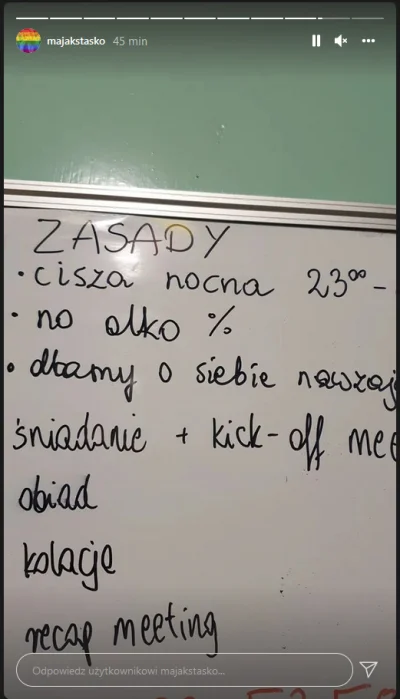 majakstasko 45 min
ZASADY
• cisza nocna 23⁰⁰ -
• no alko %
• dbamy o siebie nawzaj
śniadanie + kick-off mee
obiad
kolacja
recap meeting
Odpowiedz użytkownikowi majakstasko...